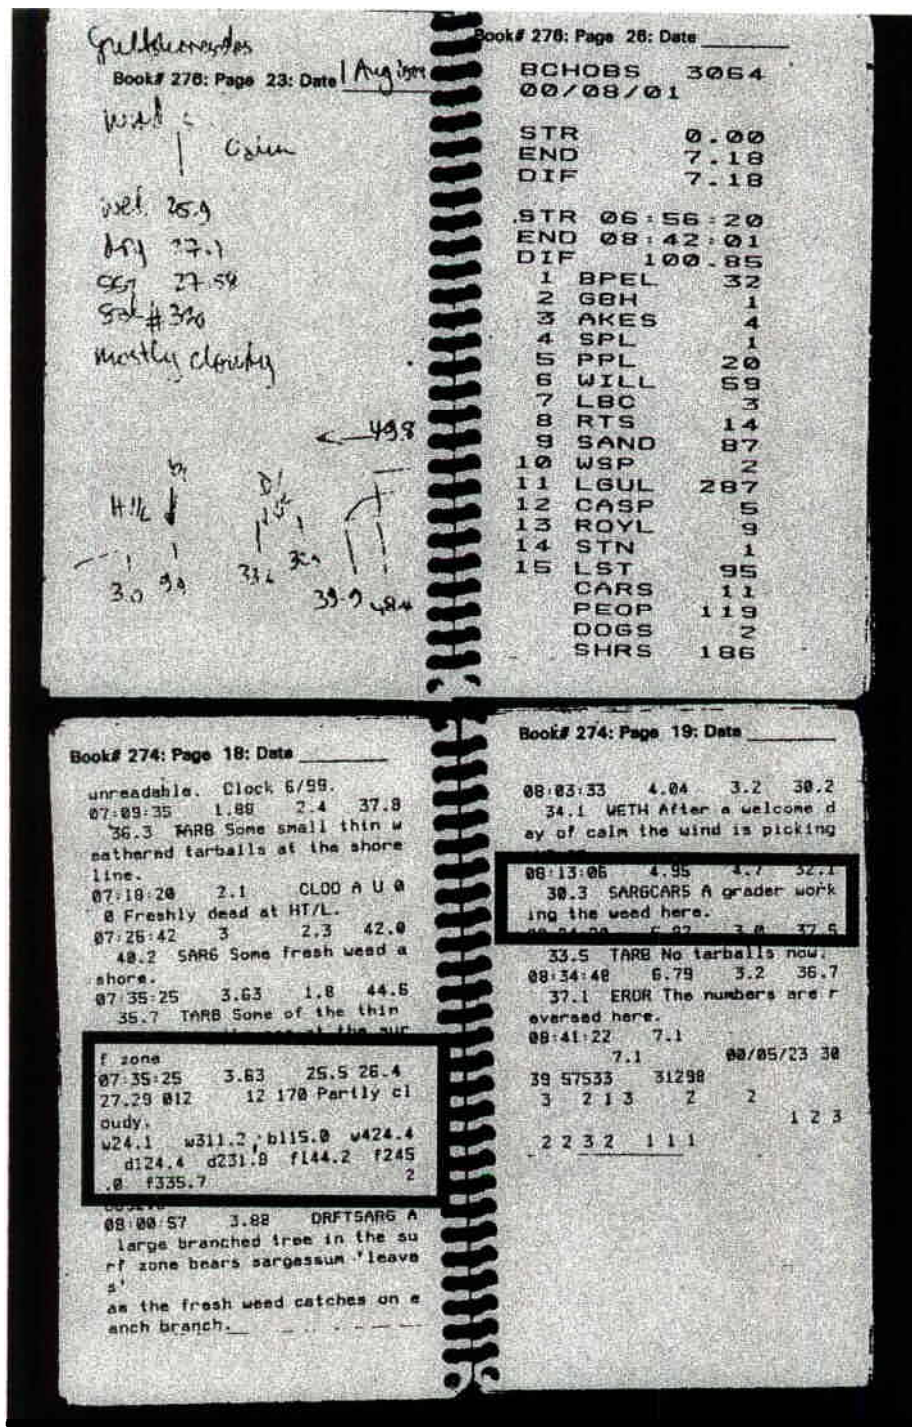 Book# 276: Page 23: Date 1 Aug
wet 25.9
dry 27.1
27.59
mostly cloudy
49.8
3.0 9.9 33.2
39.9 48.4
Book# 276: Page 26: Date
BCHOBS 3064
00/08/01
STR 0.00
END 7.18
DIF 7.18
.STR 06:56:20
END 08:42:01
DIF 100.85
1 BPEL 32
2 GBH 1
3 AKES 4
4 SPL 1
5 PPL 20
6 WILL 59
7 LBC 3
8 RTS 14
9 SAND 87
10 WSP 2
11 LGUL 287
12 CASP 5
13 ROYL 9
14 STN 1
15 LST 95
CARS 11
PEOP 119
DOGS 2
SHRS 186
Book# 274: Page 18: Date
unreadable. Clock 6/99.
07:09:35 1.88 2.4 37.8
36.3 TARB Some small thin w
eathered tarballs at the shore
line.
07:18:20 2.1 CLOO A U 0
0 Freshly dead at HT/L.
07:26:42 3 2.3 42.0
40.2 SARG Some fresh weed a
shore.
07:35:25 3.63 1.8 44.6
35.7 TARB Some of the thin
f zone
07:35:25 3.63 25.5 26.4
27.29 012 12 170 Partly cl
oudy.
w24.1 w311.2 b115.0 w424.4
d124.4 d231.8 f144.2 f245
.0 f335.7 2
08:00:57 3.88 DRFTSARG A
large branched tree in the su
rf zone bears sargassum 'leave
s'
as the fresh weed catches on e
anch branch.
Book# 274: Page 19: Date
08:03:33 4.04 3.2 30.2
34.1 WETH After a welcome d
ay of calm the wind is picking
08:13:06 4.95 4.7 32.1
30.3 SARGCARS A grader work
ing the weed here.
33.5 TARB No tarballs now.
08:34:48 6.79 3.2 36.7
37.1 EROR The numbers are r
eversed here.
08:41:22 7.1
7.1 00/05/23 30
39 57533 31298
3 2 1 3 2 2
1 2 3
2 2 3 2 1 1 1